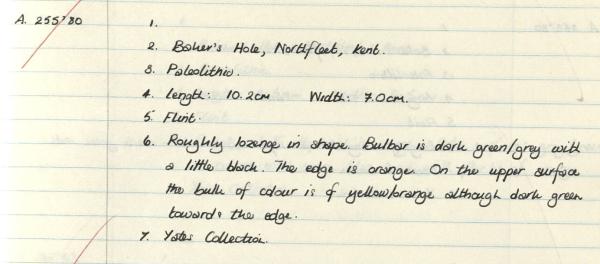 A. 255'80 1.
2. Baker's Hole, Northfleet, Kent.
3. Paleolithic.
4. Length: 10.2cm Width: 7.0cm.
5. Flint.
6. Roughly lozenge in shape. Bulbar is dark green/grey with
a little black. The edge is orange. On the upper surface
the bulk of colour is of yellow/orange although dark green
towards the edge.
7. Yates Collection.